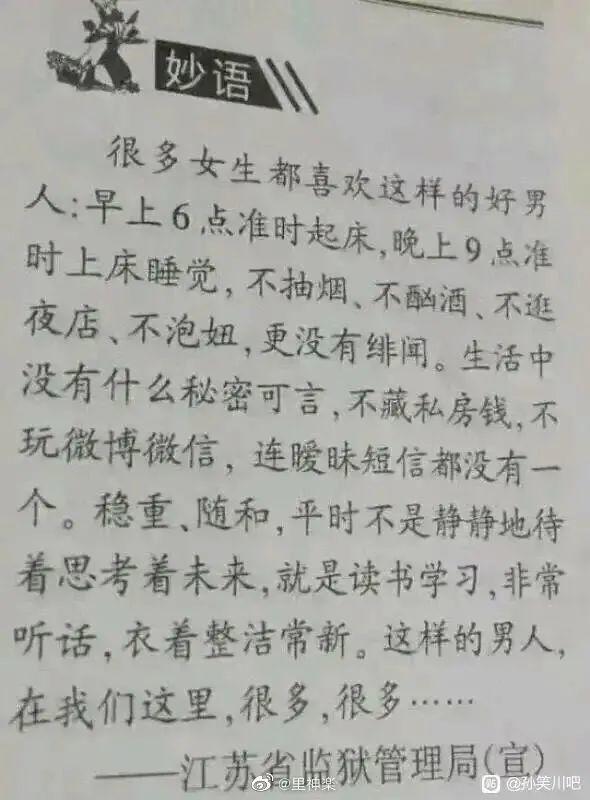 妙语
很多女生都喜欢这样的好男
人:早上6点准时起床,晚上9点准
时上床睡觉,不抽烟、不酗酒、不逛
夜店、不泡妞,更没有绯闻。生活中
没有什么秘密可言,不藏私房钱,不
玩微博微信,连暧昧短信都没有一
个。稳重、随和,平时不是静静地待
着思考着未来,就是读书学习,非常
听话,衣着整洁常新。这样的男人,
在我们这里,很多,很多……
——江苏省监狱管理局(宣)
@里神楽
@孙笑川吧